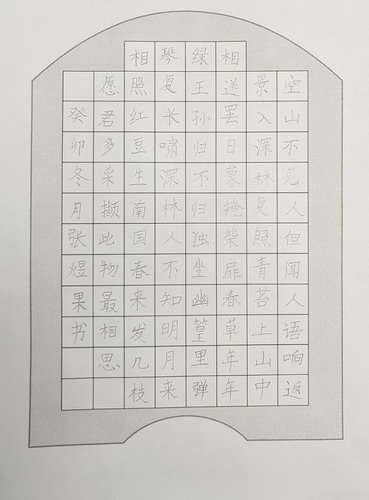 空山不见人但闻人语响返
景入深林复照青苔上山中
相送罢日暮掩柴扉春草年年
绿王孙归不归独坐幽篁里弹
琴复长啸深林人不知明月来
相照红豆生南国春来发几枝
愿君多采撷此物最相思
癸卯冬月张煜果书